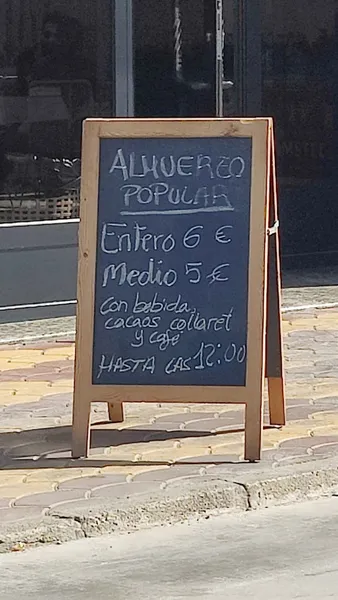 ALMUERZO
POPULAR
Entero 6 €
Medio 5 €
con bebida,
cacaos collaret
y café
HASTA LAS 12:00